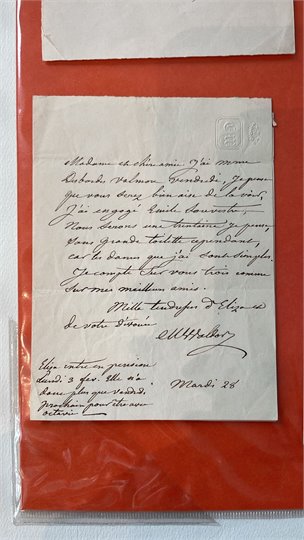 Madame et chère amie J'ai mme
Desbordes Valmore Vendredi, Je pense
que vous serez bien aise de la voir,
J'ai engagé Emile Souvestre,
Nous serons une trentaine je pense
Sans grande toilette cependant,
car les dames que j'ai sont simples.
Je compte sur vous trois comme
sur mes meilleurs amis.
Mille tendresses d'Eliza et
de votre dévouée
MWaldor
Eliza entre en pension
lundi 3 fev. Elle n'a
donc plus que vendredi
prochain pour être avec
octavie
Mardi 28